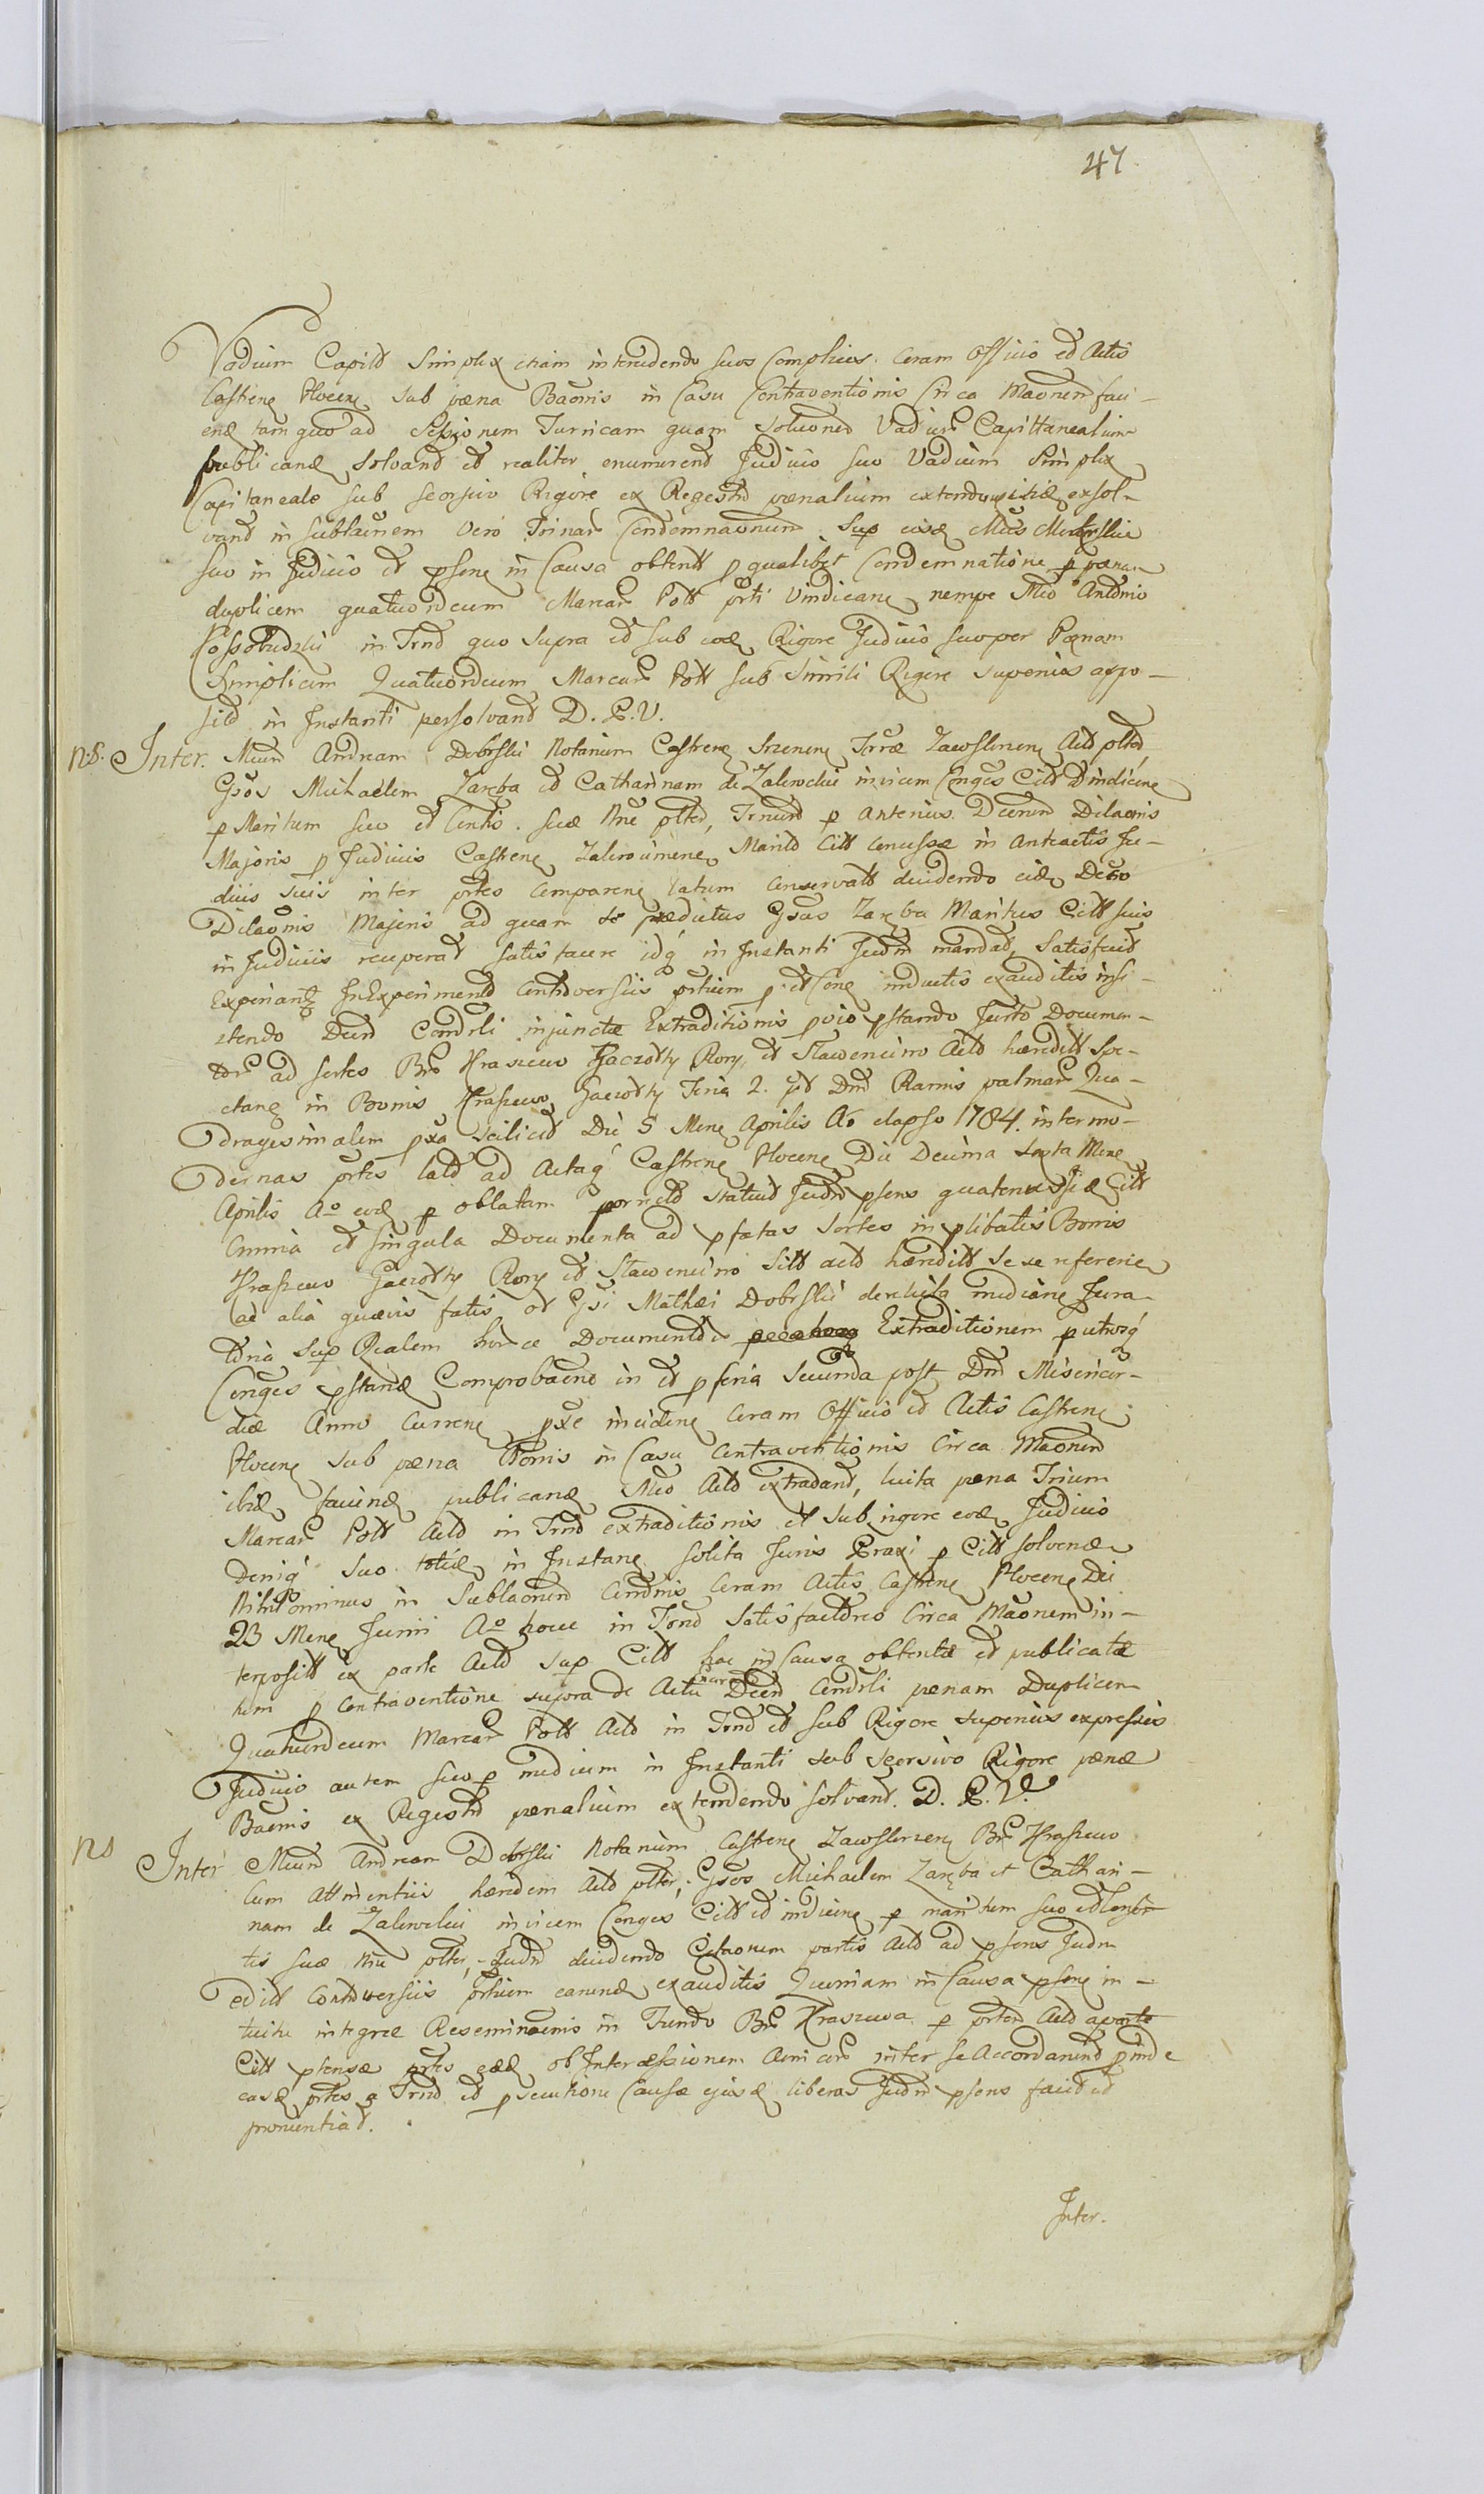 47.
Vadium Capitt Simplex etiam intercedendo suos Complices coram Officio et Actis
Castren Plocen sub pæna Baonis in Casu Contraventionis Circa Maonem faci-
end tam quo ad Sessionem Turricam quam Solutionem Vadiur Capittanealium
publicand solvand et realiter enumerend Judicio suo Vadium Simplex
Capitaneale sub seorsivo Rigore ex Regestro pænalium extendo exsol-
vand in sublaonem vero Trinar Condemnaonum sup
suo in Judicio et psene in Causa obtentt p qualibet Condemnatione p pænam
duplicem quatuordecim Marcar Poll prti Vindicane nempe Mco Antonio
in Trno quo supra et sub eod Rigore Judicio suo per Pænam
Simplicem Quatuordecim Marcar Poll sub Simili Rigore superius appo-
sito in Instanti persolvand D. P. V.
NS. Inter Mcum Andream Dobrski Notarium Castren Terræ Zawskrzen
Gsos Michaelem Zaręba et Catharinam de Zalewskie invicem Conges Citt
p Maritum suo et Contis suæ Nne Trnum p anterius Decrum Dilaonis
Majoris p Judiciis Castren Marito Citt concessæ in anteactis Ju-
diis suis inter prtes comparen latum conservatt decidendo Decto
Dilaonis Majoris ad quam se prædictus Gsus Zaręba Maritus Citt suis
in Judiciis recuperat satisfacere idq in Instanti Judm mandat, Satisfecit
Experiantz In Experimento Controversiis prtium inductis exauditis insi-
stendo Decro Condrli injunctæ Extraditionis pstando Jurto Documen-
tor ad sortes Br Kraszewo Gaczołty Rory et Sławęcino Acto hæreditt Spe-
ctane in Bonis Kraszewo Gaczołty Feria 2. pt Dnm Ramis palmar Qua-
dragesimalem pxa scilicet Die 5 Mene Aprilis Ao elapso 1784. inter mo-
dernas prtes lato ad Actaq Castren Plocen Die Decima sexta Mene
Aprilis Ao eod p oblatam porrecto statuit Judm psens quatenus Citt
Omnia et singula Documenta ad pfatas sortes in plibatis Bonis
Kraszewo Gaczołty Rory et Sławęcino Sitt acto hæreditt sese referene
ac alia quævis fatis ol Gsi Mathæi Dobrski derelicta mediane Jura-
toria sup Realem horce Documentor Extraditionem p utrosq
Conges pstand Comprobaone in et p feria Secunda post Dnm Misericor-
diæ Anno Currene pxe incidene Coram Officio et Actis Castren
Plocen sub pæna Bonis in Casu Contraventionis Circa Maonem
ibid faciend publicand Mco Acto extradant, luita pæna Trium
Marcar Poll Acto in Trno extraditionis et sub rigore eod Judicio
Deniq suo totid in Instane solita Juris Praxi p Citt solvend
Nihilominus in Sublaonem Condnis Coram Actis Castren Plocen Die
23 Mene Junii Ao hocce in Trno Satisfactores Circa Maonem in-
terpositt ex parte Acto sup Citt hac in Causa obtentæ et publicatæ
tum p Contraventione supra de Actu Decro Condrli pænam Duplicem
Quatuordecim Marcar Poll Acto in Trno et sub Rigore superius expressis
Judicio autem suo p medium in Instanti sub seorsivo Rigore pænæ
Baonis ex Regestro pænalium extendendo solvant. D. P. V.
NS Inter Mcum Andream Dobrski Notarium Castren Zawskrzen Br Kraszewo
Cum attinentiis hæredem Acto Gsos Michaelem Zaręba et Cathari-
nam de Zalewskie invicem Conges Citt et indicine p maritum suo et Contor-
tis suæ Nne Judm decidendo Citaonem partis Acto ad psens Judm
editt Controversiis prtium earund exauditis Quoniam in Causa psene in-
tuitu integræ Reseminaonis in Fundo Br Kraszewa p prtem Acto a parte
Citt ptensæ prtes eæd ob Intercessionem Amicor inter se Accordarunt proinde
easd prtes a Trno et psecutione Causæ ejusd liberas Judm psens facit et
pronuntiat.
Inter.